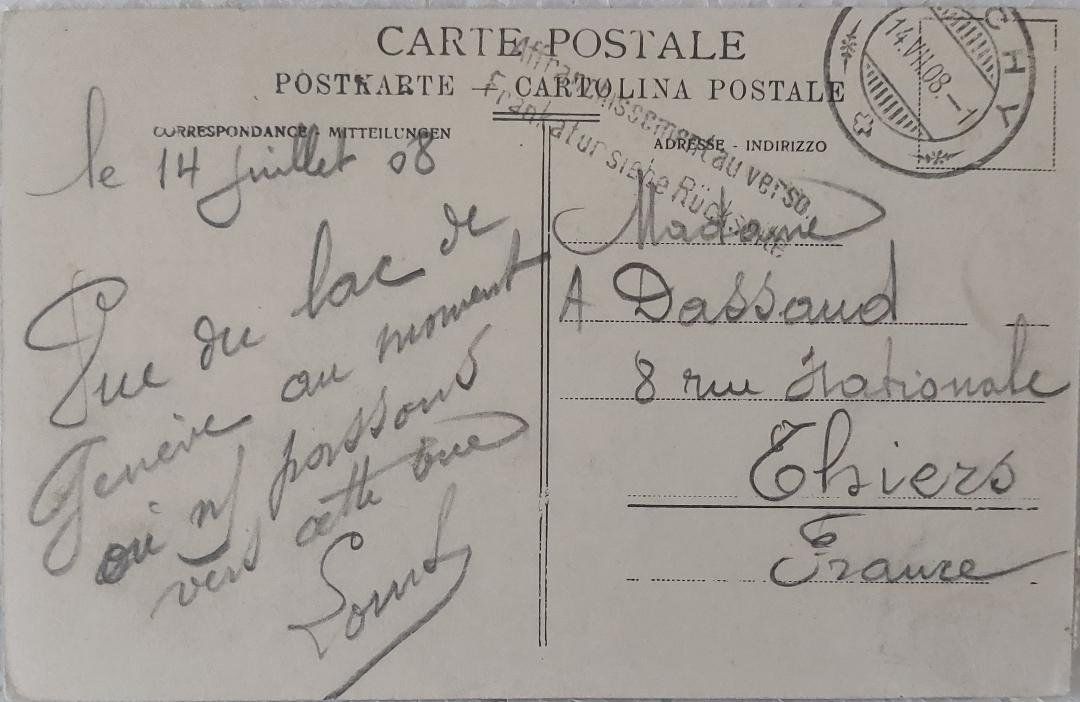 CARTE POSTALE
POSTKARTE — CARTOLINA POSTALE
CORRESPONDANCE - MITTEILUNGEN
ADRESSE - INDIRIZZO
Affranchissement au verso.
Frankatur siehe Rückseite
CHY
14.VII.08.-1
le 14 juillet 08
Vue du lac de
Genève au moment
où n/ passons
vers cette vue
Madame
A Dassaud
8 rue Nationale
Thiers
France